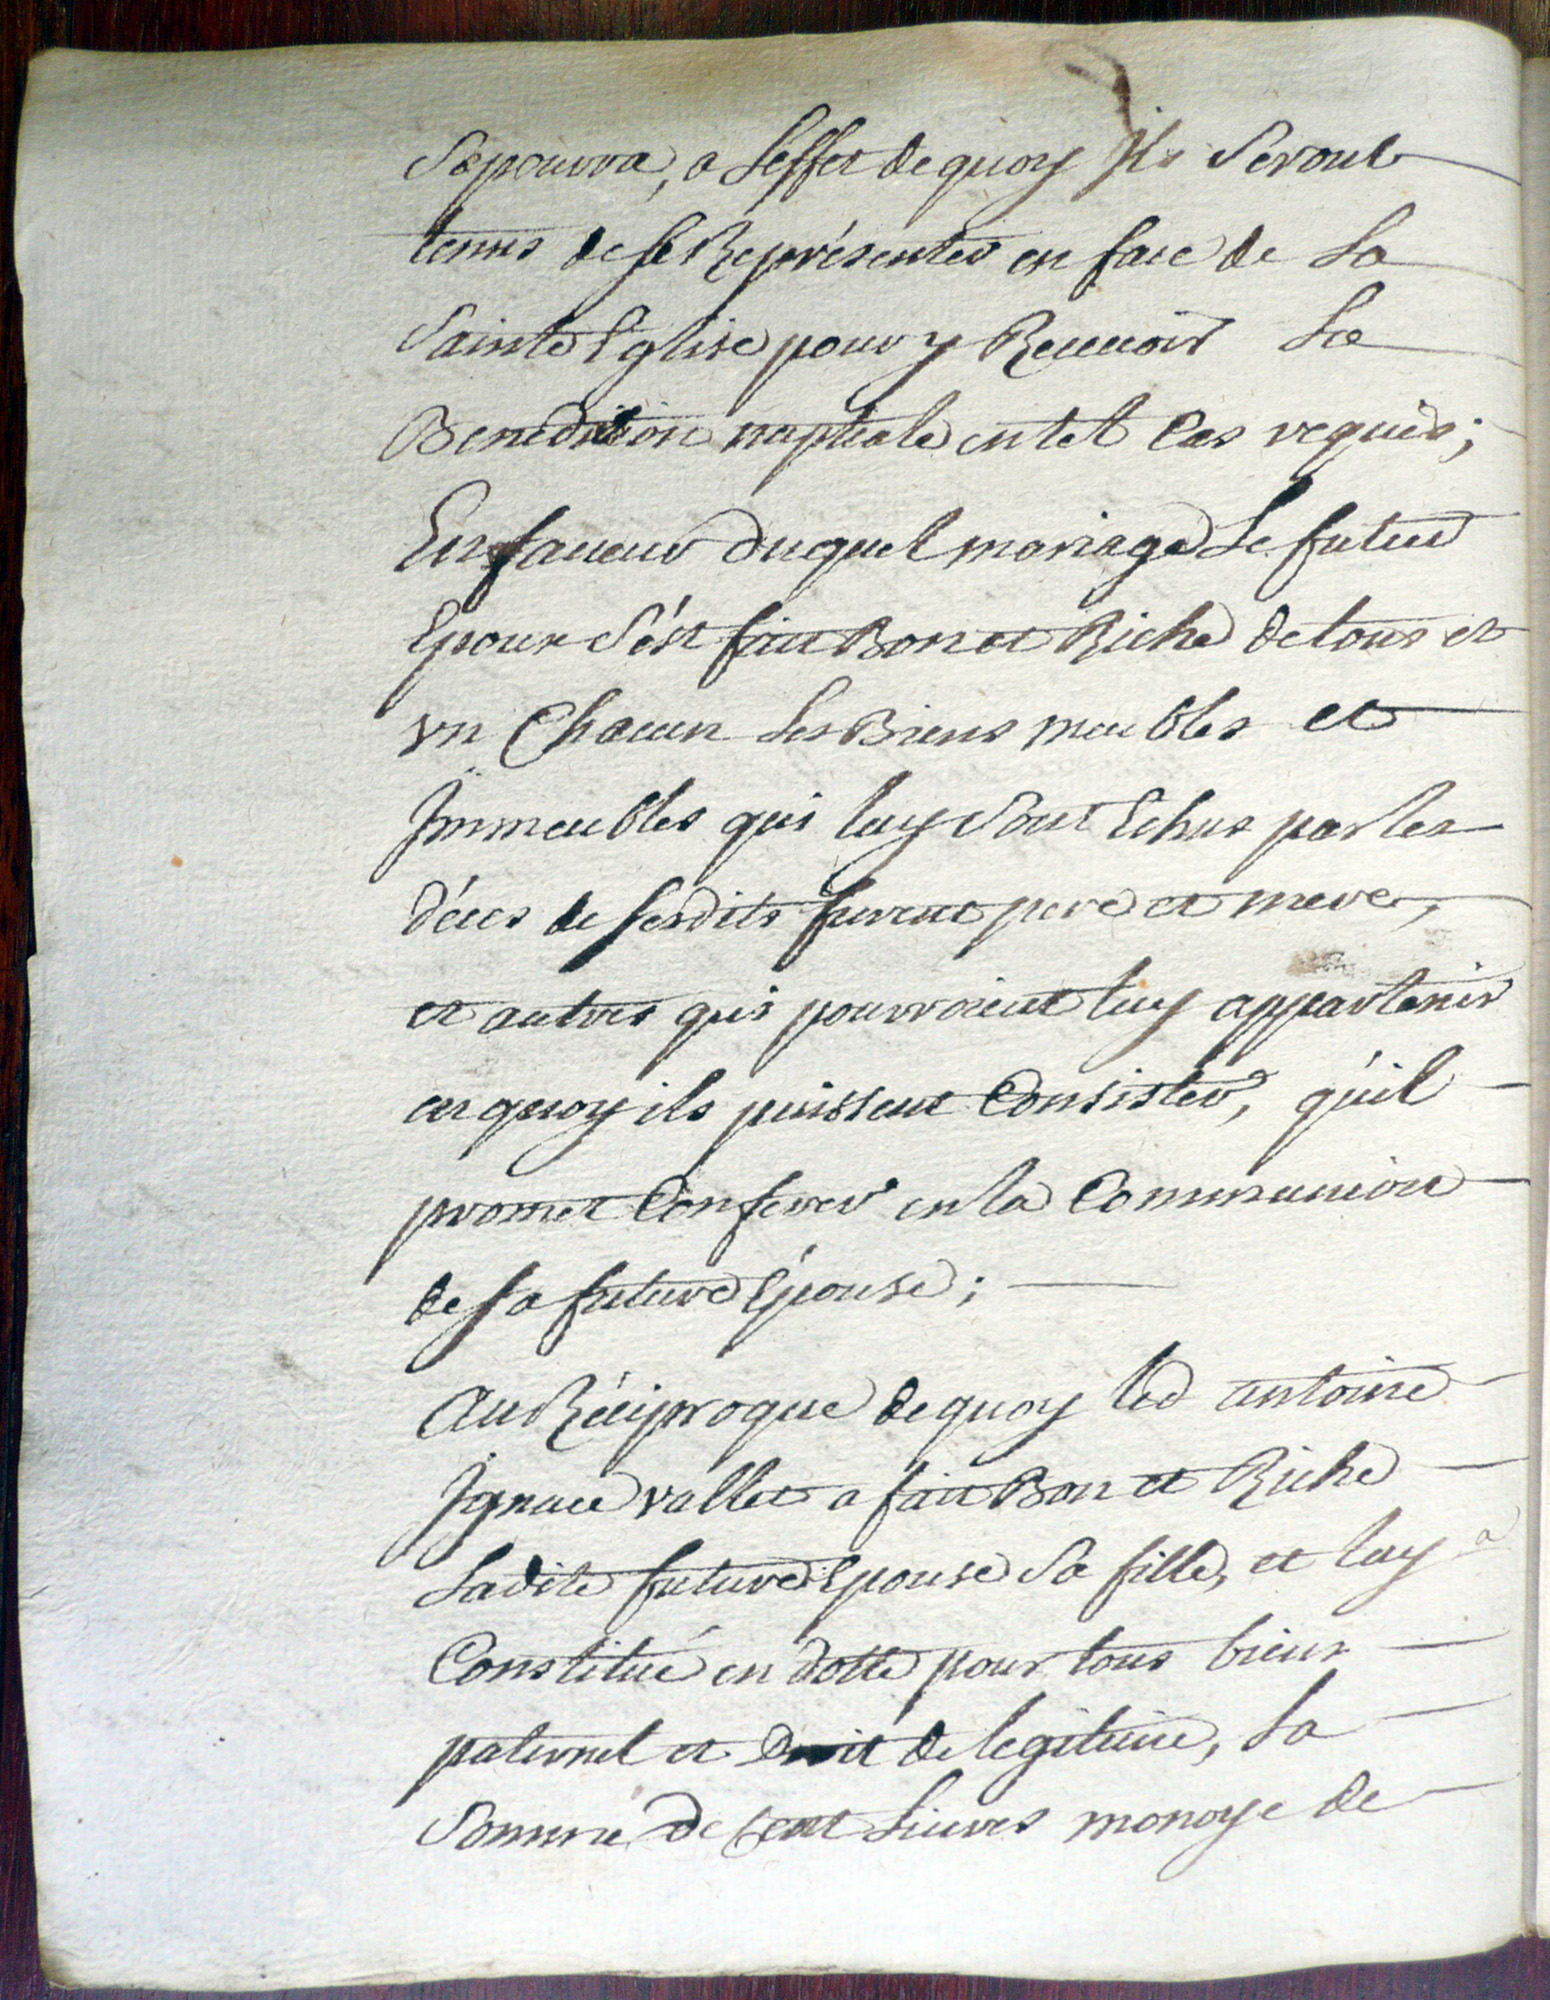 Se pourra, a Leffet de quoy Ils Seront
tenus de se Représenter en face de La
Sainte Eglise pour y Receuoir La
Benediction nuptiale en tel Cas requis;
En faueur duquel mariage Le futur
Epoux S'ést fait Bon et Riche de tous et
vn Chacun Ses Biens meubles et
Immeubles qui luy Sont Echus par les
décès de sesdits furent pere et mere,
et autres qui pourroient luy appartenir
en quoy ils puissent Consister, qu'il
promet Conferer en la Communion
de sa future Épouse;
Au Réciproque de quoy led antoine
Ignace vallet a fait Bon et Riche
Ladite future Epouse Sa fille, et luy a
Constitué en dotte pour tous biens
paternel et Droit de legitime, La
Somme de Cent Liures monoye de